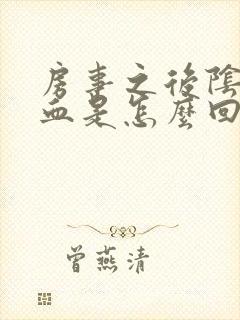 房事之後陰
血是怎麼回
曾燕清